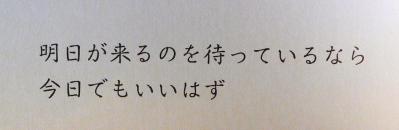 明日が来るのを待っているなら
今日でもいいはず